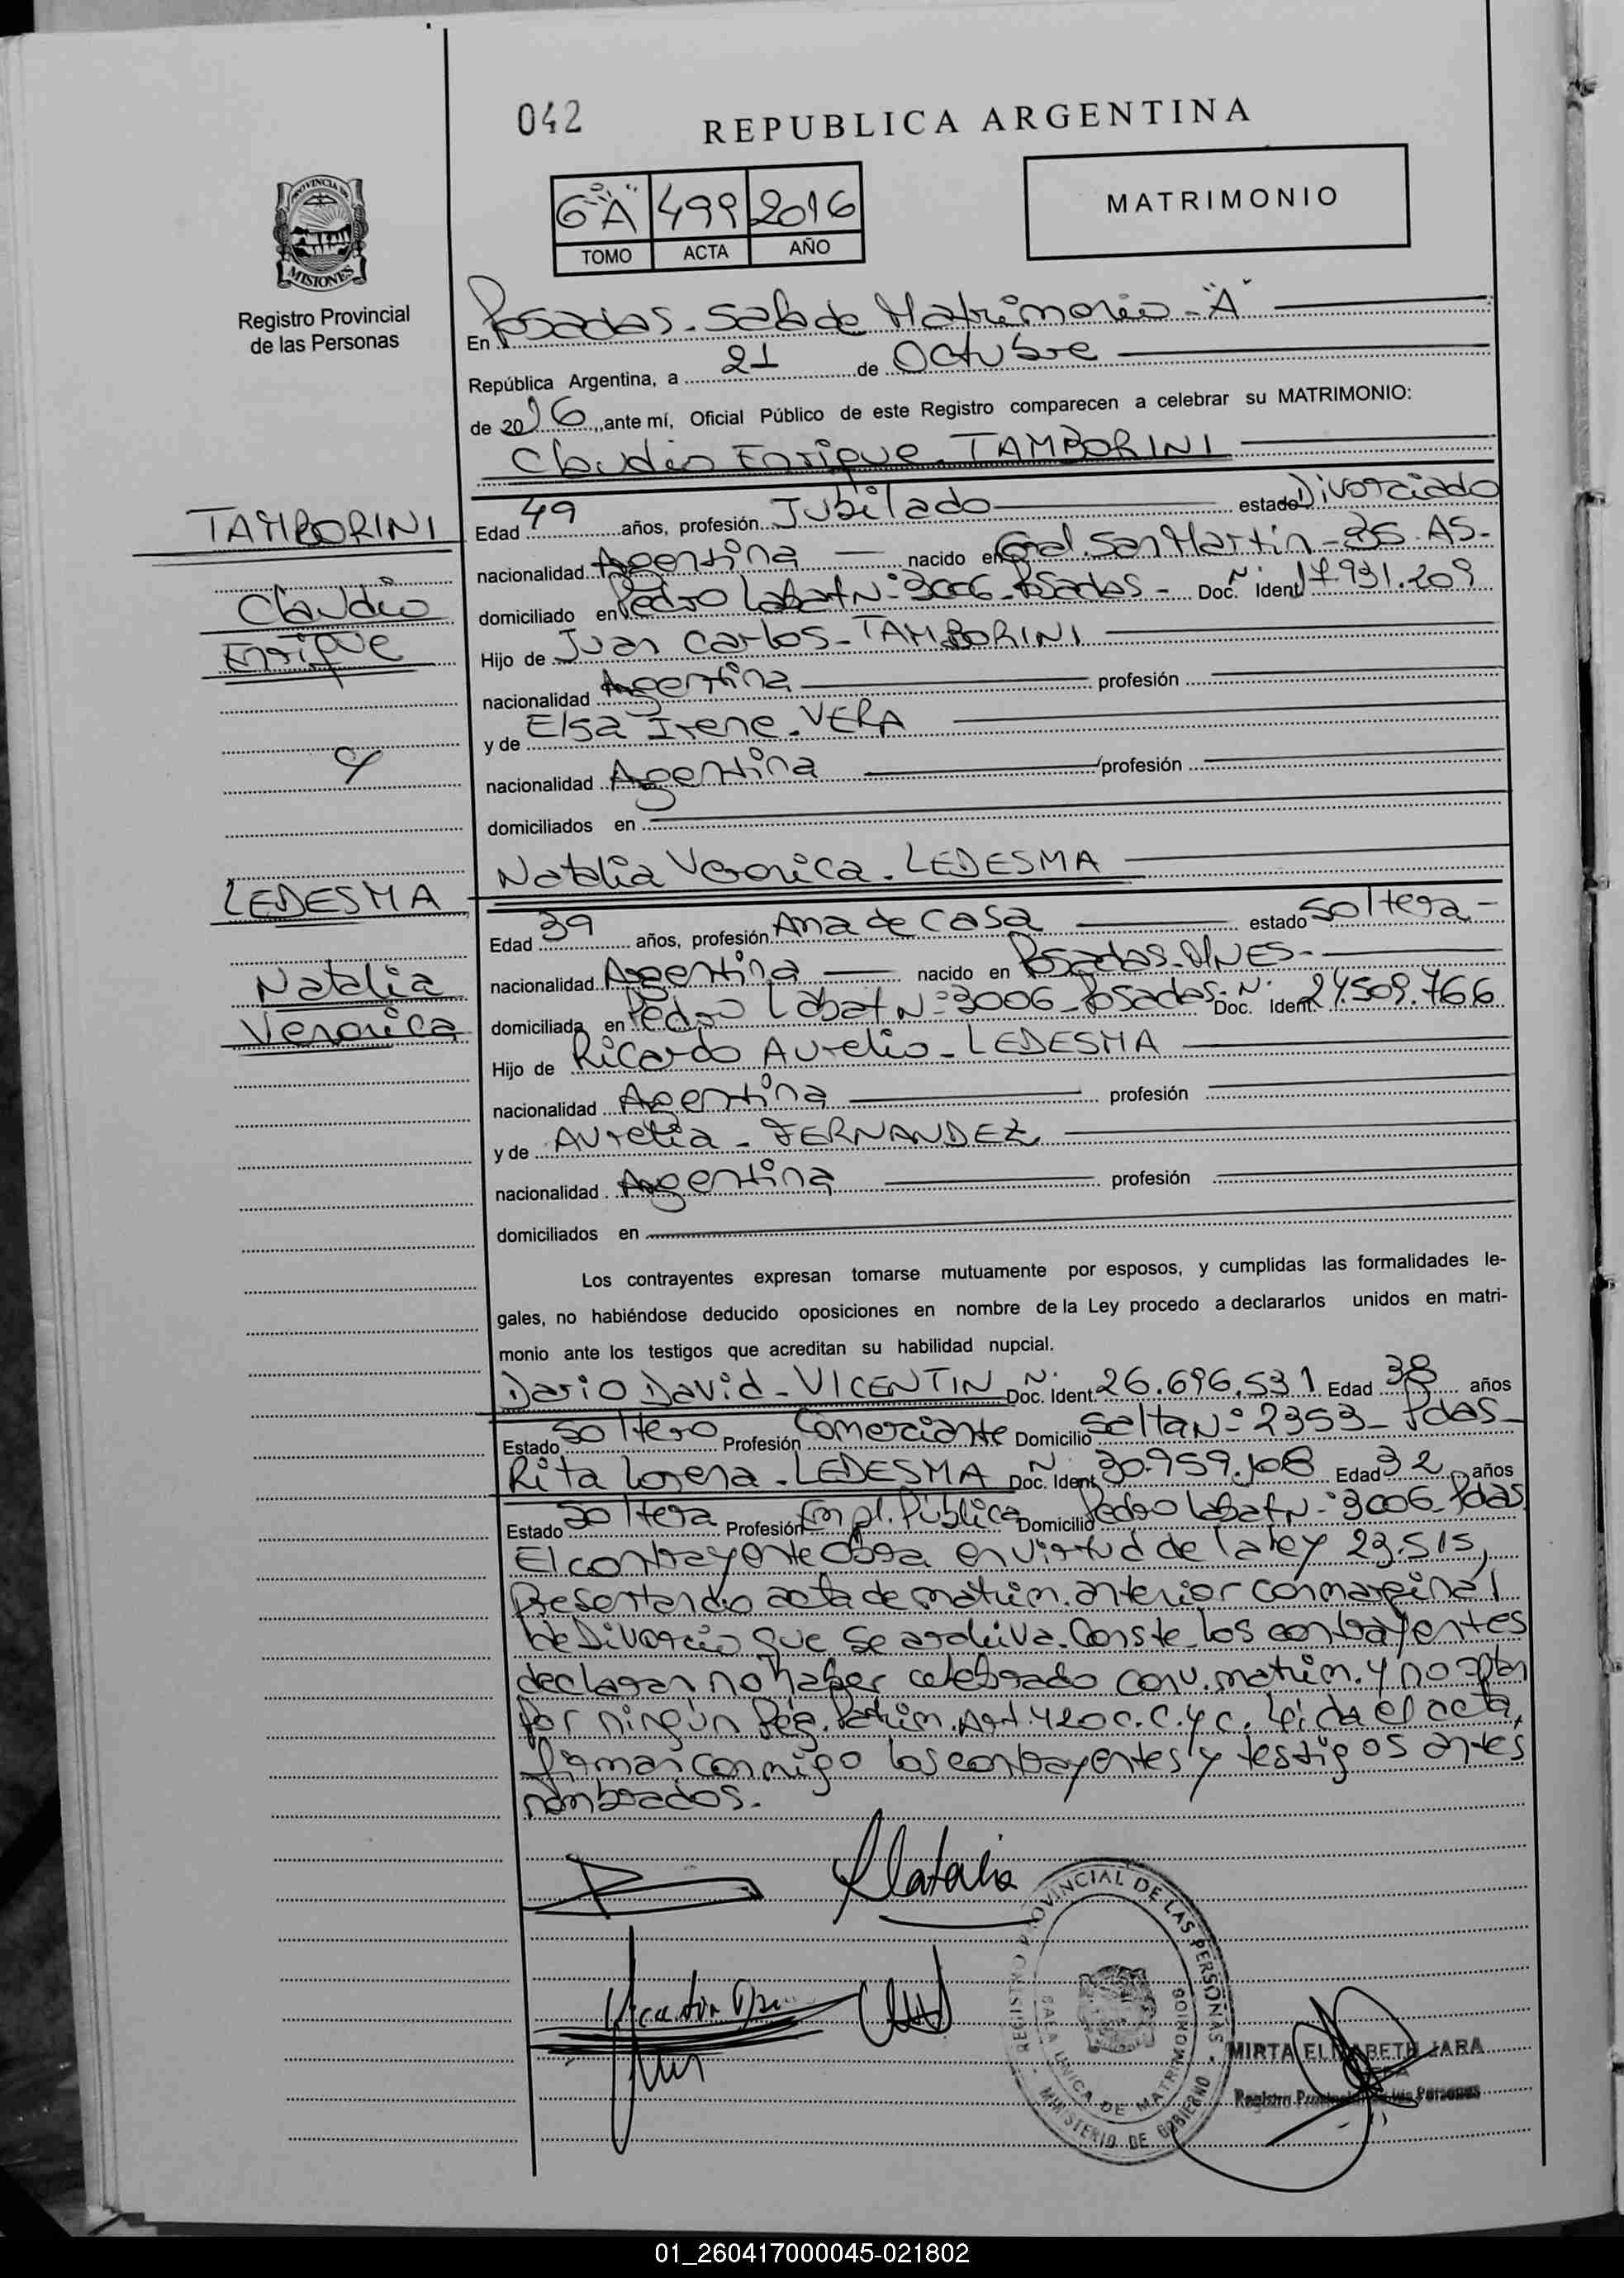 042
REPUBLICA ARGENTINA
6º"A" 499 2016
TOMO ACTA AÑO
MATRIMONIO
PROVINCIA DE
MISIONES
Registro Provincial
de las Personas
En Posadas - Sala de Matrimonio - "A"
República Argentina, a 21 de Octubre
de 2016, ante mí, Oficial Público de este Registro comparecen a celebrar su MATRIMONIO:
Claudio Enrique TAMBORINI
TAMBORINI
Claudio
Enrique
Edad 49 años, profesión Jubilado estado Divorciado
nacionalidad Argentina nacido en Gral. San Martín - BS. AS-
domiciliado en Pedro Labat Nº 3006 - Posadas - Doc. Nº Ident. 17.931.209
Hijo de Juan Carlos - TAMBORINI
nacionalidad Argentina profesión
y de Elsa Irene - VERA
y
nacionalidad Argentina profesión
domiciliados en
Natalia Veronica - LEDESMA
LEDESMA
Natalia
Veronica
Edad 39 años, profesión Ama de Casa estado Soltera -
nacionalidad Argentina nacido en Posadas - MNES -
domiciliada en Pedro Labat Nº 3006 - Posadas - Nº Doc. Ident. 24.509.766
Hijo de Ricardo Aurelio - LEDESMA
nacionalidad Argentina profesión
y de Aurelia - FERNANDEZ
nacionalidad Argentina profesión
domiciliados en
Los contrayentes expresan tomarse mutuamente por esposos, y cumplidas las formalidades le-
gales, no habiéndose deducido oposiciones en nombre de la Ley procedo a declararlos unidos en matri-
monio ante los testigos que acreditan su habilidad nupcial.
Dario David - VICENTIN Nº Doc. Ident. 26.696.531 Edad 38 años
Estado Soltero Profesión Comerciante Domicilio Salta Nº 2353 - Pdas -
Rita Lorena - LEDESMA Nº Doc. Ident. 30.959.108 Edad 32 años
Estado Soltera Profesión Empl. Pública Domicilio Pedro Labat Nº 3006 - Pdas
El contrayente obra en virtud de la ley 23.515,
Presentando acta de matrim. anterior con marginal
de Divorcio que se archiva. Conste los contrayentes
declaran no haber celebrado conv. matrim. y no optan
por ningún Rég. Patrim. Art. 420 C.C. y C. Leida el acta,
firman conmigo los contrayentes y testigos antes
nombrados.
Natalia
REGISTRO PROVINCIAL DE LAS PERSONAS
SALA UNICA DE MATRIMONIOS
MINISTERIO DE GOBIERNO
MIRTA ELIZABETH JARA
Registro Provincial de las Personas
01_260417000045-021802